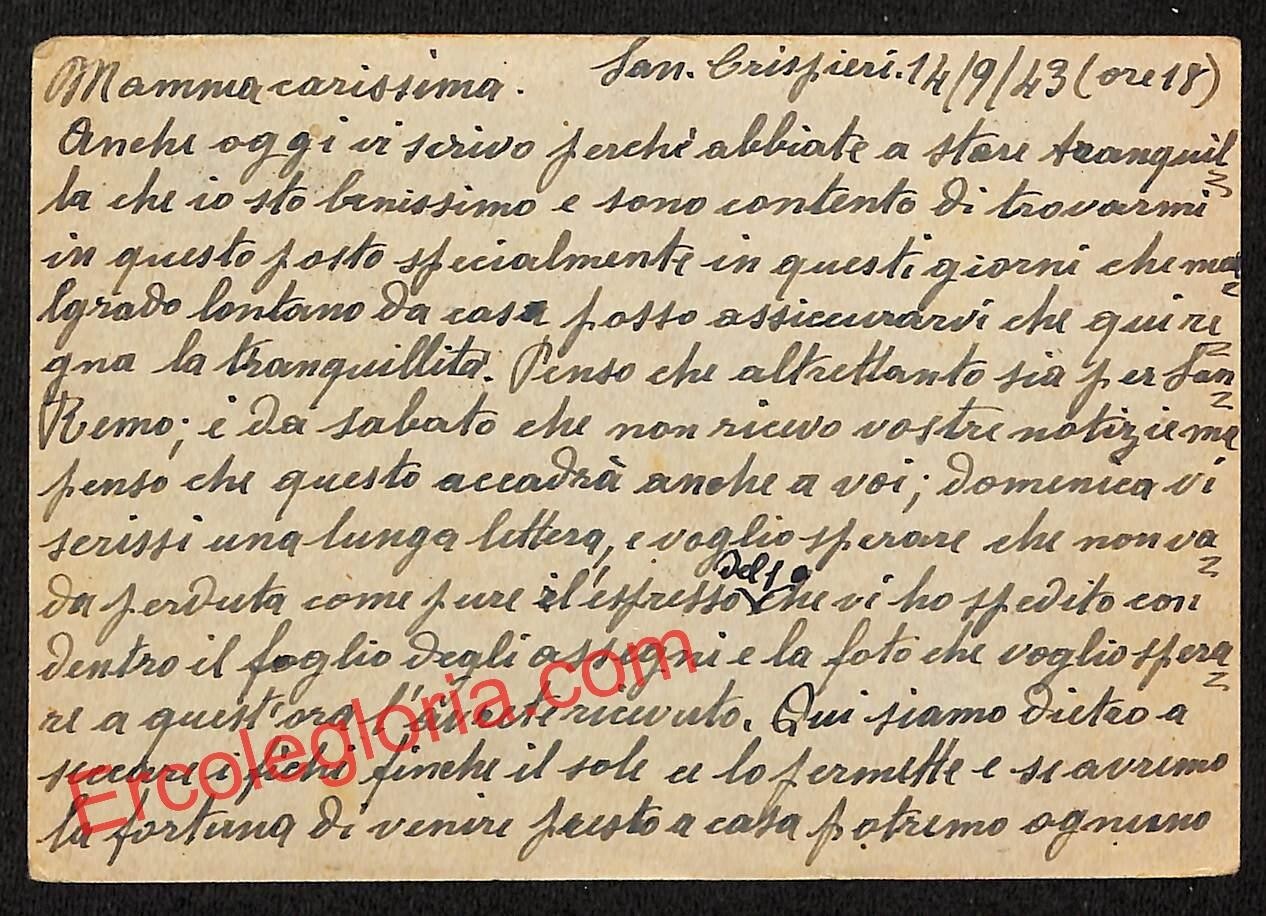 San. Crispieri. 14/9/43 (ore 18)
Mamma carissima.
Anche oggi vi scrivo perchè abbiate a stare tranquil
la che io sto benissimo e sono contento di trovarmi
in questo posto specialmente in questi giorni che ma
lgrado lontano da casa posso assicurarvi che qui re
gna la tranquillità. Penso che altrettanto sia per San
Remo; è da sabato che non ricevo vostre notizie ma
penso che questo accadrà anche a voi; domenica vi
scrissi una lunga lettera, e voglio sperare che non va
da perduta come pure il'espresso del che vi ho spedito con
dentro il foglio degli assegni e la foto che voglio spera
re a quest'ora l'avrete ricevuto. Qui siamo dietro a
seccare i fichi finche il sole ce lo permette e se avremo
la fortuna di venire presto a casa potremo ognuno
Ercolegloria.com